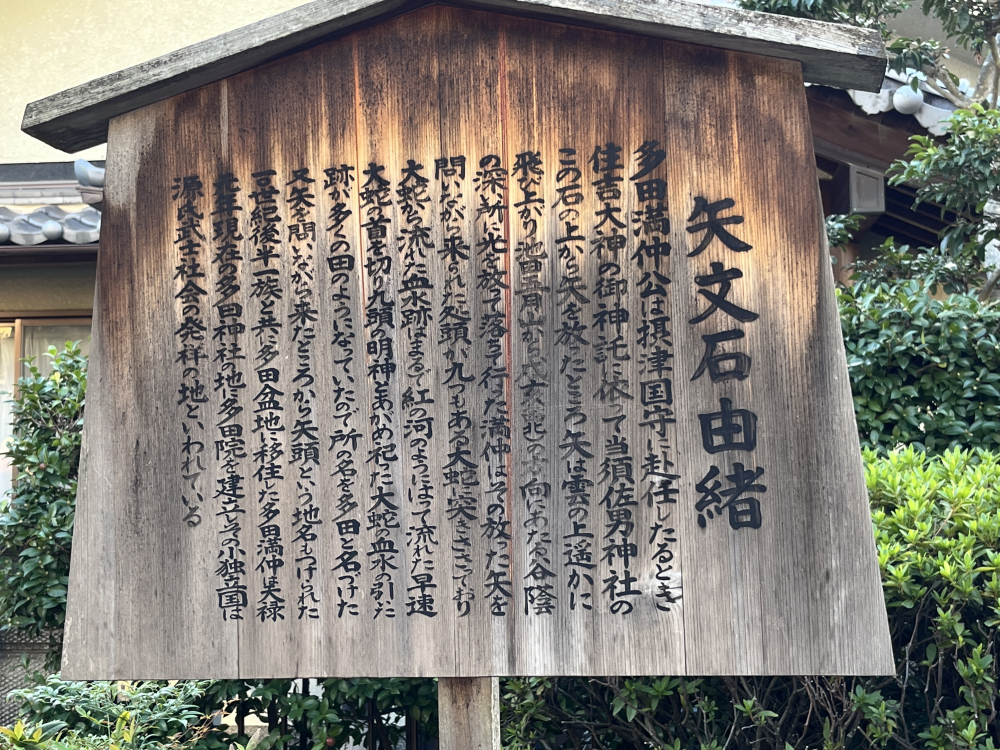 矢文石由緒
多田満仲公は摂津国守に赴任したるとき
住吉大神の御神託に依って当須佐男神社の
この石の上から矢を放ったところ矢は雲の上遙かに
飛び上がり池田五月山から戌亥(北)の方向にあたる谷蔭
の深い所に光を放って落ちて行った満仲はその放った矢を
問いながら来られた処頭が九つもある大蛇に突きささっており
大蛇から流れた血水跡はまるで紅の河のようにはって流れた早速
大蛇の首を切り九頭の明神とあがめ祀った大蛇の血水の引いた
跡が多くの田のようになっていたので所の名を多田と名づけた
又矢を問いながら来たところから矢頭という地名もつけられた
世紀後半一族と共に多田盆地に移住した多田満仲は天禄
元年現在の多田神社の地に多田院を建立しその小独立国は
源氏武士社会の発祥の地といわれている